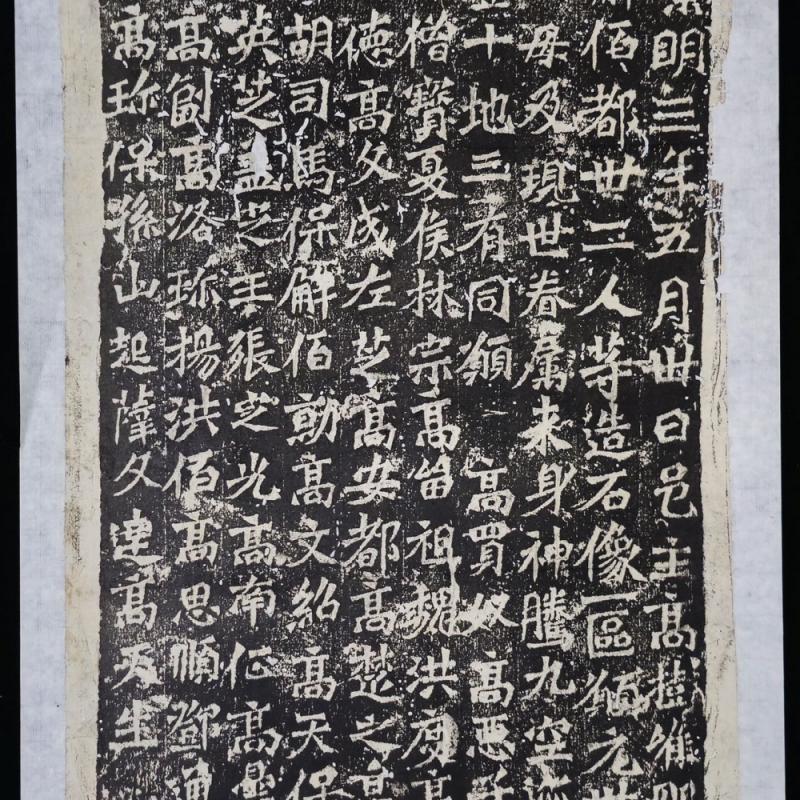 景明三年五月卅日邑主高樹維那
佰都卅二人等造石像一區願元世
母及現世眷属来身神騰九空迹
十地三有同願 高買奴高悪子
楷賢夏侯林宗高留祖魏洪度高
徳高文成左芝高安都高楚之高
胡司馬保解佰勛高文紹高天保
英芝盖芝王張芝光高南征高
高劊高洛珎揚洪佰高思順
高珎保孫山起薩文達高天生